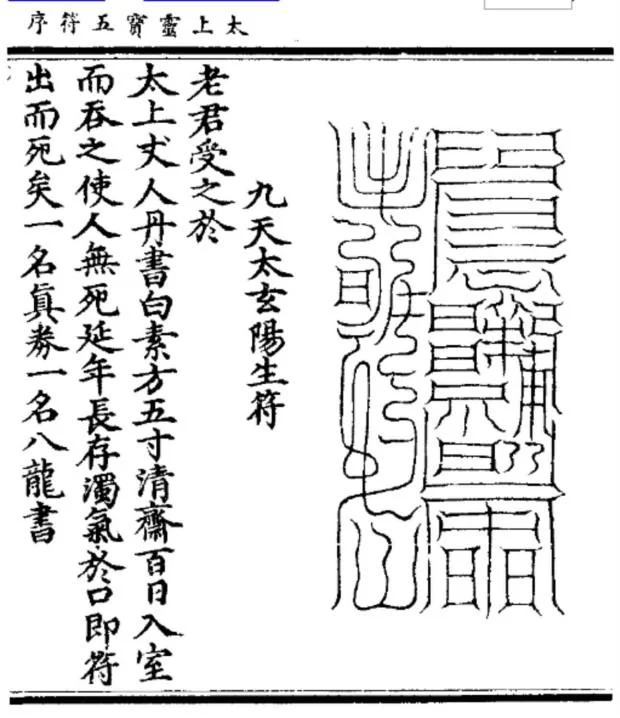 太上靈寶五符序
九天太玄陽生符
老君受之於
太上丈人丹書白素方五寸清齋百日入室
而吞之使人無死延年長存濁氣於口即符
出而死矣一名眞劵一名八龍書